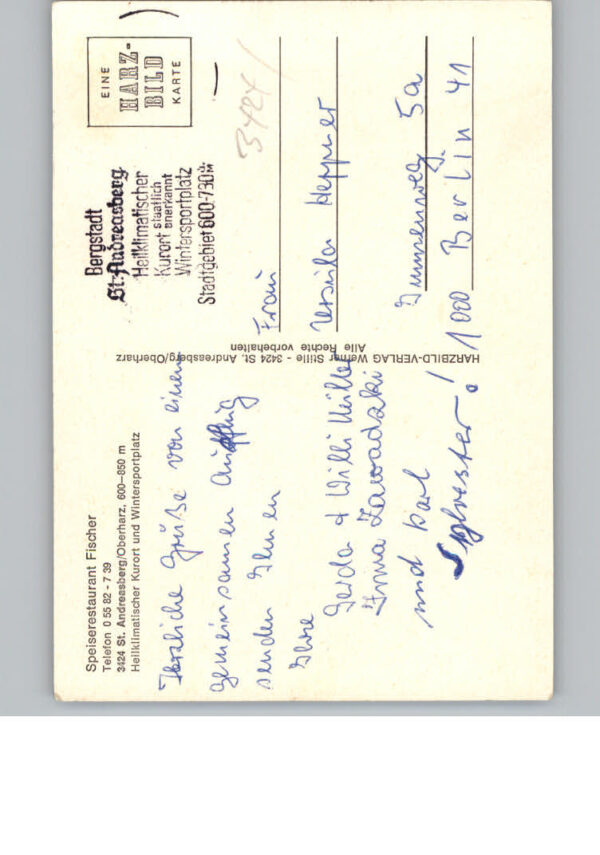 Speiserestaurant Fischer
Telefon 0 55 82 - 7 39
3424 St. Andreasberg/Oberharz, 600–850 m
Heilklimatischer Kurort und Wintersportplatz
Herzliche Grüße von einem
gemeinsamen Ausflug
senden Ihnen
Ihre
Gerda + Willi
Irma Zawadzki
und Karl
Sylvester!
HARZBILD-VERLAG Werner Stille - 3424 St. Andreasberg/Oberharz
Alle Rechte vorbehalten
Bergstadt
St. Andreasberg
Heilklimatischer
Kurort staatlich anerkannt
Wintersportplatz
Stadtgebiet 600-730 m
EINE
HARZ-
BILD
KARTE
3424/
Frau
Ursula Heppner
5a
1000 Berlin 41